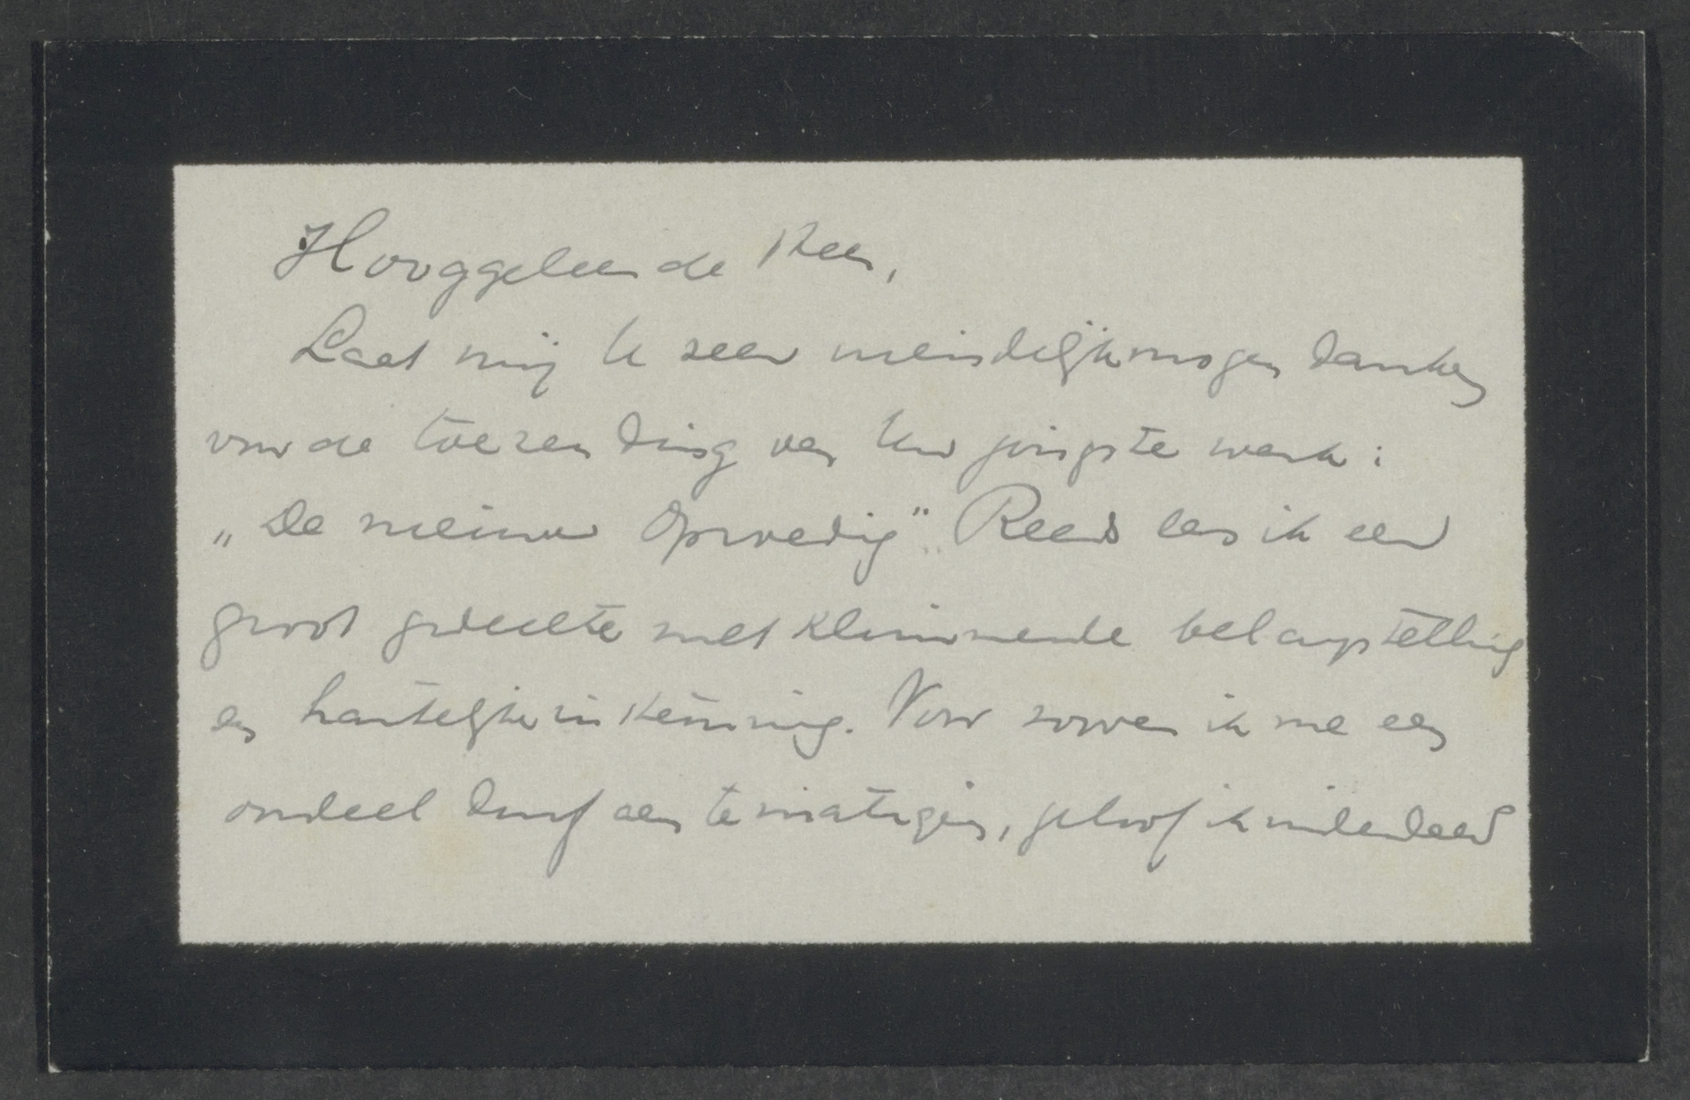 Hooggeleerde Heer,
Laat mij U zeer vriendelijk mogen danken
voor de toezending van Uw jongste werk:
„De nieuwe Opvoeding". Reeds las ik een
groot gedeelte met klimmende belangstelling
en hartelijke inkenning. Voor zoover ik me een
oordeel durf aan te matigen, geloof ik inderdaad